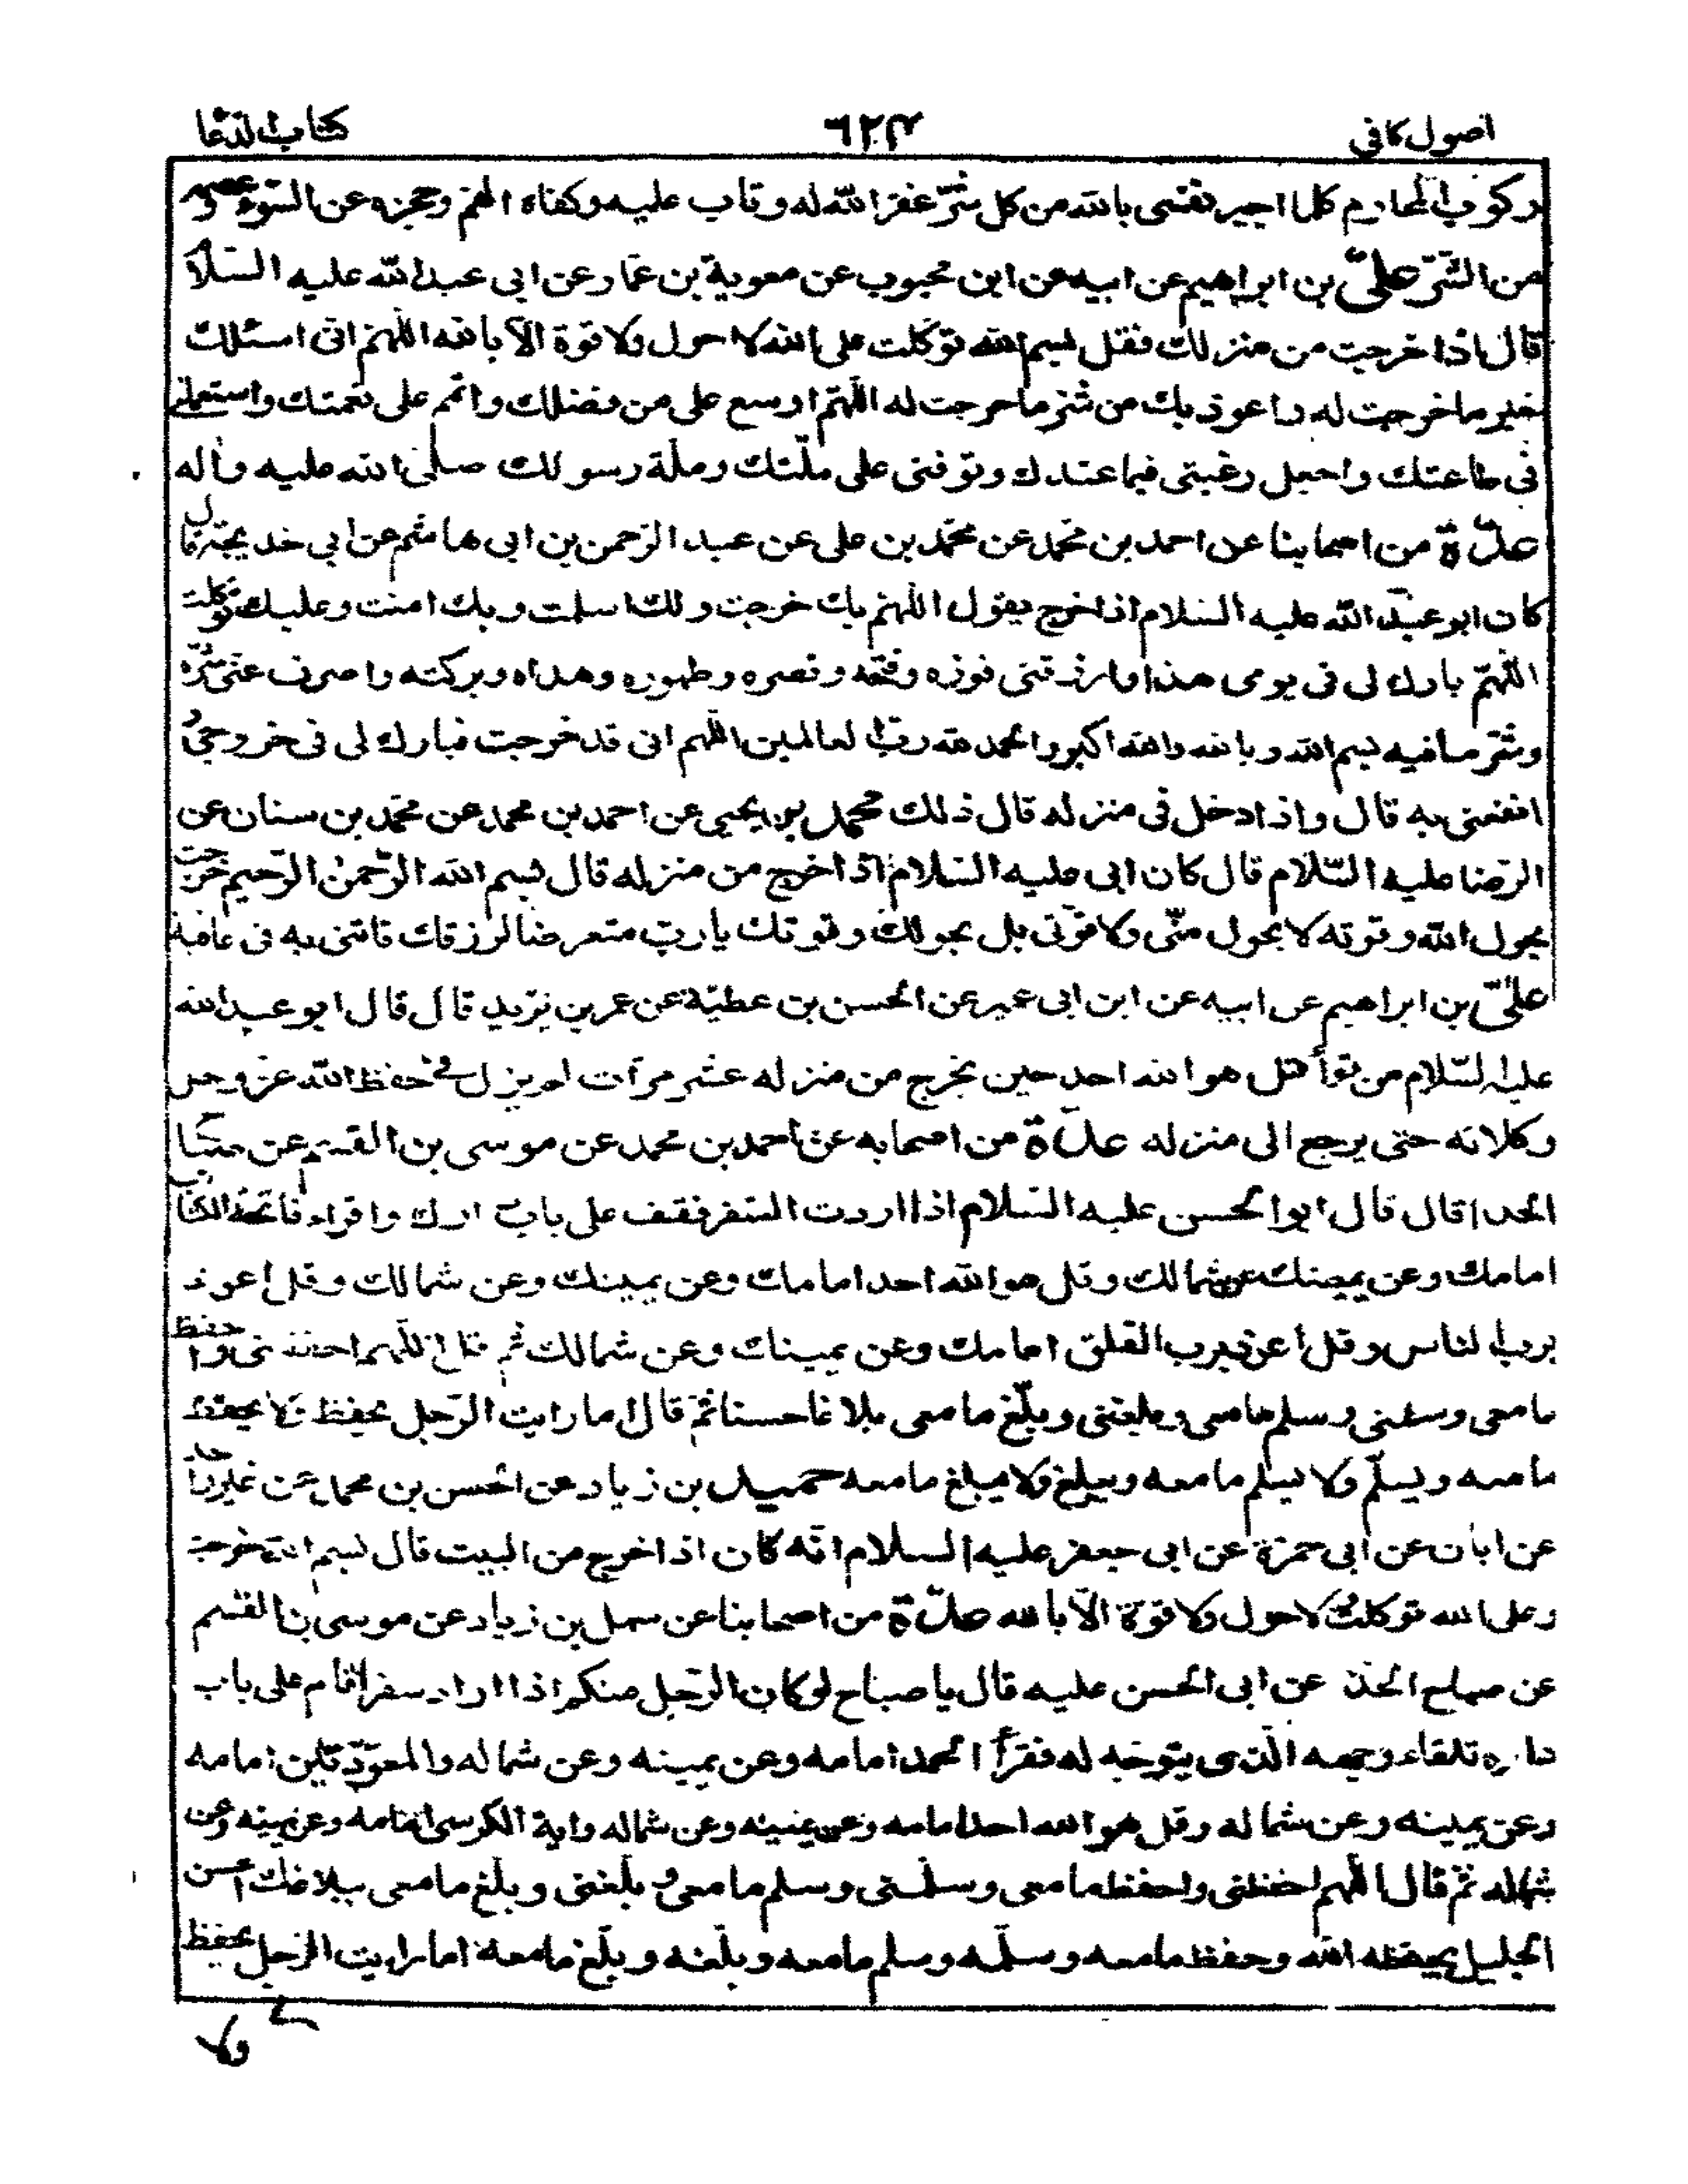 اصول كافى
٦٢٣
كتاب الدعا
ركوب المحارم كلها اجير نفسى بالله من كل شرّ غفر الله له وتاب عليه وكفاه الهم وحجزه عن السوء وعصمه
من الشرّ علىّ بن ابراهيم عن ابيه عن ابن محبوب عن معوية بن عمّار عن ابى عبد الله عليه السّلام
قال اذا خرجت من منزلك فقل بسم الله توكلت على الله لا حول ولا قوة الّا بالله اللّهم انى اسئلك
خير ما خرجت له واعوذ بك من شرّ ما خرجت له اللّهمّ اوسع على من فضلك واتمم على نعمتك واستعملنى
فى طاعتك واجعل رغبتى فيما عندك وتوفنى على ملّتك وملّة رسولك صلّى الله عليه واله
عدّة من اصحابنا عن احمد بن محمّد عن محمّد بن على عن عبد الرّحمن بن ابى هاشم عن ابى خديجة قال
كان ابو عبد الله عليه السّلام اذا خرج يقول اللّهم بك خرجت ولك اسلمت وبك امنت وعليك توكلت
اللّهمّ بارك لى فى يومى هذا وارزقنى فوزه وفتحه ونصره وطهوره وهداه وبركته واصرف عنّى شرّه
وشرّ ما فيه بسم الله وبالله والله اكبر والحمد لله ربّ العالمين اللّهم انى قد خرجت فبارك لى فى خروجى و
انفعنى به قال واذا دخل فى منزله قال ذلك محمد بن يحيى عن احمد بن محمد عن محمّد بن سنان عن
الرّضا عليه السّلام قال كان ابى عليه السّلام اذا خرج من منزله قال بسم الله الرّحمن الرّحيم خرجت
بحول الله وقوته لا بحول منّى ولا قوّتى بل بحولك وقوتك يا ربّ متعرضا لرزقك فاتنى به فى عافية
علىّ بن ابراهيم عن ابيه عن ابن ابى عمير عن الحسن بن عطيّة عن عمر بن يزيد قال قال ابو عبد الله
عليه السّلام من قرأ قل هو الله احد حين يخرج من منزله عشر مرّات لم يزل فى حفظ الله عزّ وجل
وكلاته حتى يرجع الى منزله عدّة من اصحابه عن احمد بن محمد عن موسى بن القسم عن صباح
الحذا قال قال ابو الحسن عليه السّلام اذا اردت السّفر فقف على باب دارك واقراء فاتحة الكتاب
امامك وعن يمينك وعن شمالك وقل هو الله احد امامك وعن يمينك وعن شمالك وقل اعوذ
برب الناس وقل اعوذ برب الفلق امامك وعن يمينك وعن شمالك ثم قل اللّهم احفظنى واحفظ
ما معى وسلمنى وسلم ما معى وبلغنى وبلّغ ما معى بلاغا حسنا ثمّ قال اما رايت الرّجل يحفظ ولا يحفظ
ما معه ويسلّم ولا يسلم ما معه ويبلغ ولا يبلغ ما معه حميد بن زياد عن الحسن بن محمد عن غير واحد
عن ابان عن ابى حمزة عن ابى جعفر عليه السلام انّه كان اذا خرج من البيت قال بسم الله خرجت
وعلى الله توكلت لا حول ولا قوّة الّا بالله عدّة من اصحابنا عن سهل بن زياد عن موسى بن القسم
عن صباح الحذ عن ابى الحسن عليه قال يا صباح لو كان الرّجل منكم اذا اراد سفرا قام على باب
داره تلقاء وجهه الّذى يتوجه له فقرأ الحمد امامه وعن يمينه وعن شماله والمعوّذتين امامه
وعن يمينه وعن شماله وقل هو الله احد امامه وعن يمينه وعن شماله واية الكرسى امامه وعن يمينه وعن
شماله ثمّ قال اللّهم احفظنى واحفظ ما معى وسلّمنى وسلم ما معى وبلّغنى وبلّغ ما معى ببلاغك الحسن
الجليل يحفظه الله وحفظ ما معه وسلّمه وسلم ما معه وبلّغه وبلّغ ما معه اما رايت الرّجل يحفظ
ولا